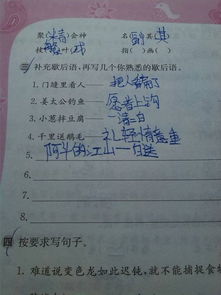 聚(精)会神 名(副)其( )
指( )画( )
三 补充歇后语,再写几个你熟悉的歇后语。
1. 门缝里看人——把人看扁了
2. 姜太公钓鱼——愿者上钩
3. 小葱拌豆腐——一清二白
4. 千里送鹅毛——礼轻情意重
5. 阿斗的江山——白送
四 按要求写句子。
1. 难道说变色龙如此迟钝,就不能捕捉食